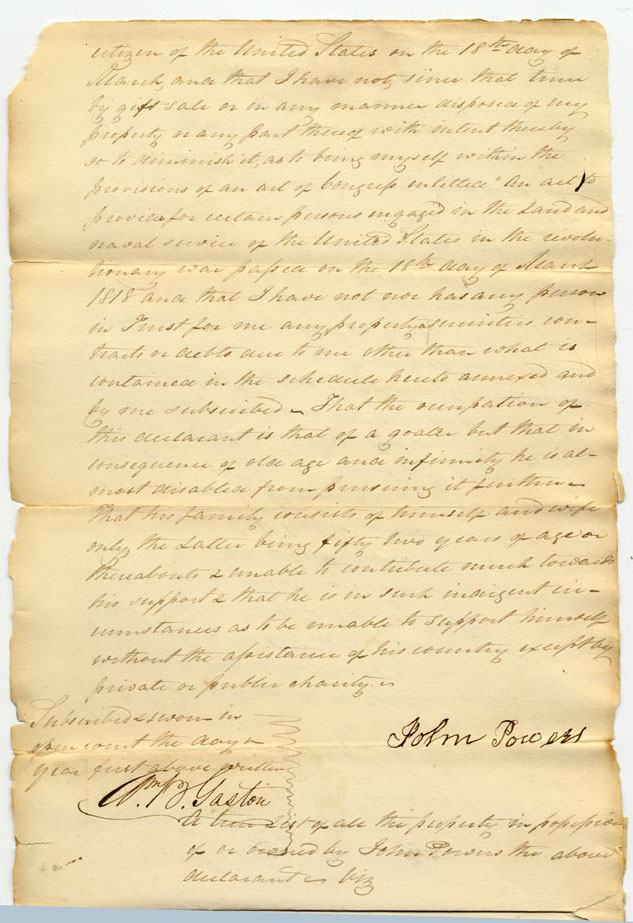 citizen of the United States on the 18th day of
March, and that I have not, since that time
by gift sale or in any manner disposed of my
property or any part thereof with intent thereby
so to diminish it, as to bring myself within the
provisions of an act of Congress entitled "An act to
provide for certain persons engaged in the Land and
naval service of the United States in the revolu-
tionary war passed on the 18th day of March
1818 and that I have not nor has any person
in Trust for me any property securities con-
tracts or debts due to me other than what is
contained in the schedule hereto annexed and
by me subscribed - That the occupation of
this declarant is that of a goaler but that in
consequence of old age and infirmity he is al-
most disabled from pursuing it further -
that his family consists of himself and wife
only the Latter being fifty two years of age or
thereabouts & unable to contribute much towards
his support & that he is in such indigent cir-
cumstances as to be unable to support himself
without the assistance of his country except by
private or public charity -
Subscribed & sworn in
open court the day &
year first above written
John Powers
Wm. B. Gaston
A true List of all the property in possession
of or owned by John Powers the above
declarant - Viz